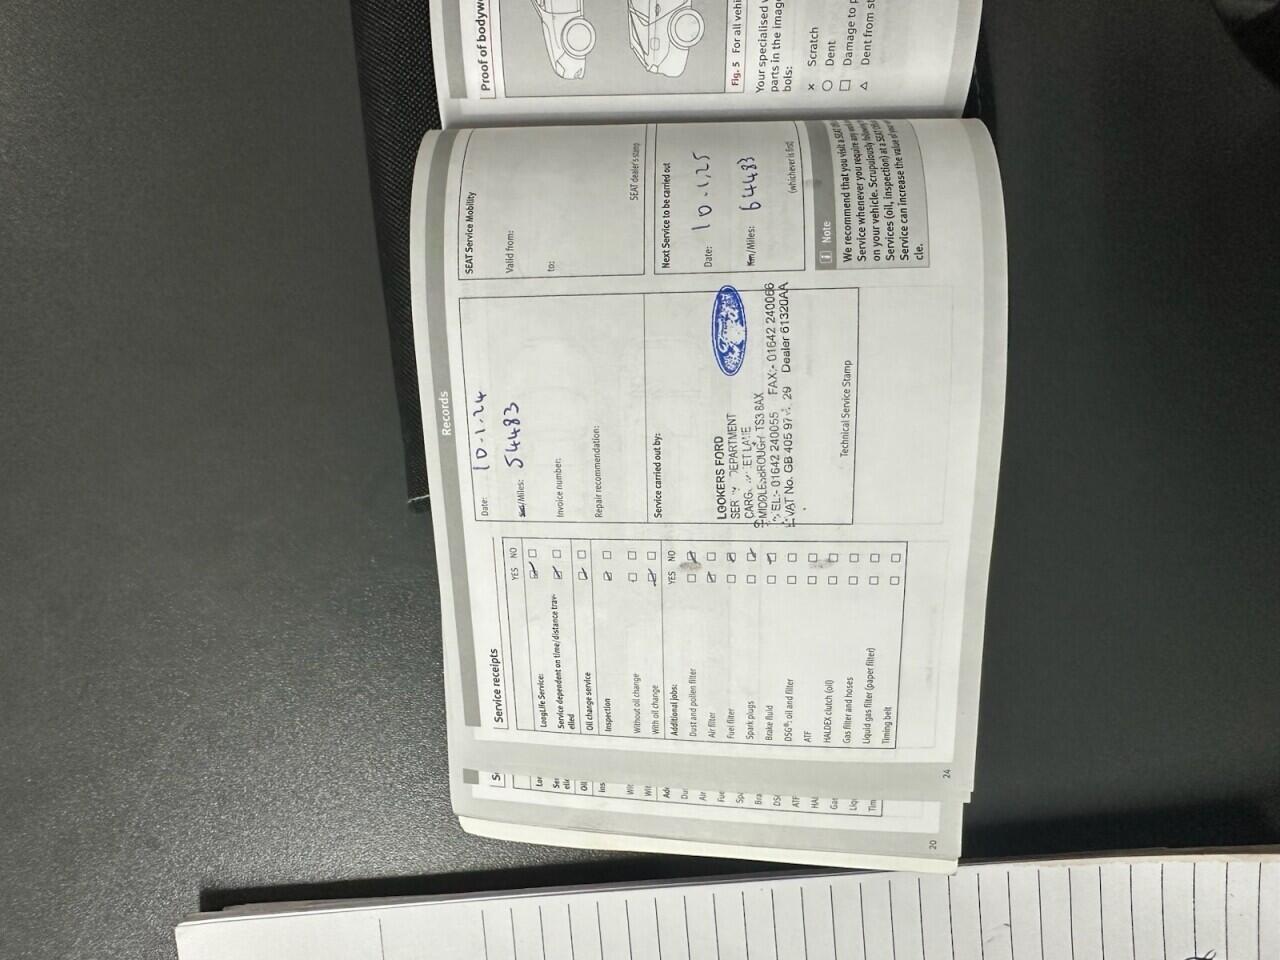 Records
Service receipts
YES NO
LongLife Service:
Service dependent on time/distance trav-
elled
Oil change service
Inspection
Without oil change
With oil change
Additional jobs:
YES NO
Dust and pollen filter
Air filter
Fuel filter
Spark plugs
Brake fluid
DSG®: oil and filter
ATF
HALDEX clutch (oil)
Gas filter and hoses
Liquid gas filter (paper filter)
Timing belt
24
Date: 10.1.24
/Miles: 54483
Invoice number:
Repair recommendation:
Service carried out by:
Ford
LOOKERS FORD
DEPARTMENT
LANE
MIDDLESBROUGH TS3 8AX
TEL:- 01642 240055 FAX:- 01642 240066
VAT No. GB 405 97 29 Dealer 61320AA
Technical Service Stamp
SEAT Service Mobility
Valid from:
to:
SEAT dealer's stamp
Next Service to be carried out
Date: 10.1.25
Km/Miles: 64483
(whichever is first)
i Note
We recommend that you visit a SEAT
Service whenever you require any
on your vehicle. Scrupulously
Services (oil, inspection) at a SEAT
Service can increase the value of your
cle.
Proof of bodywo
Fig. 5 For all vehi
Your specialised
parts in the imag
bols:
× Scratch
○ Dent
□ Damage to p
△ Dent from st
S
Lo
Ser
elle
Oil
Ins
Wit
Wit
Ad
Du
Air
Fue
Spa
Bra
DS
ATF
HAL
Gas
Liq
Tim
20